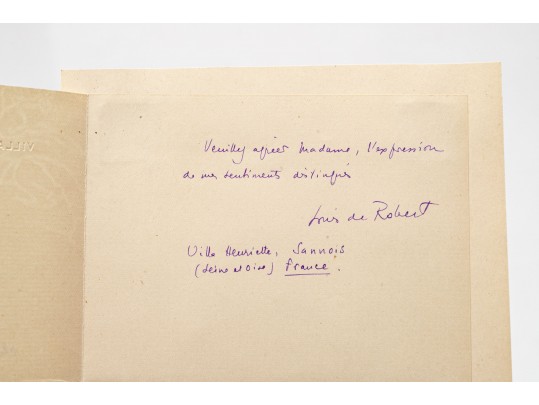 Veuillez agréer Madame, l'expression
de mes sentiments distingués
Louis de Robert
Villa Henriette, Sannois
(Seine et Oise) France.